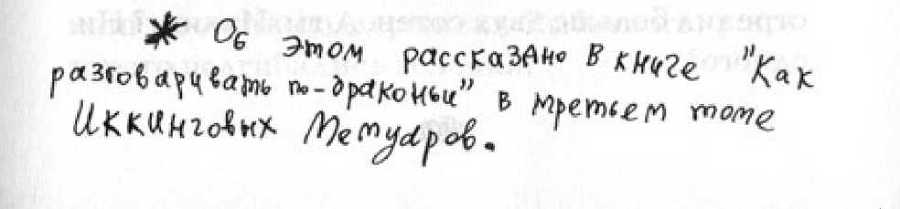 * Об этом рассказано в книге "Как
разговаривать по-драконьи" в третьем томе
Иккинговых Мемуаров.